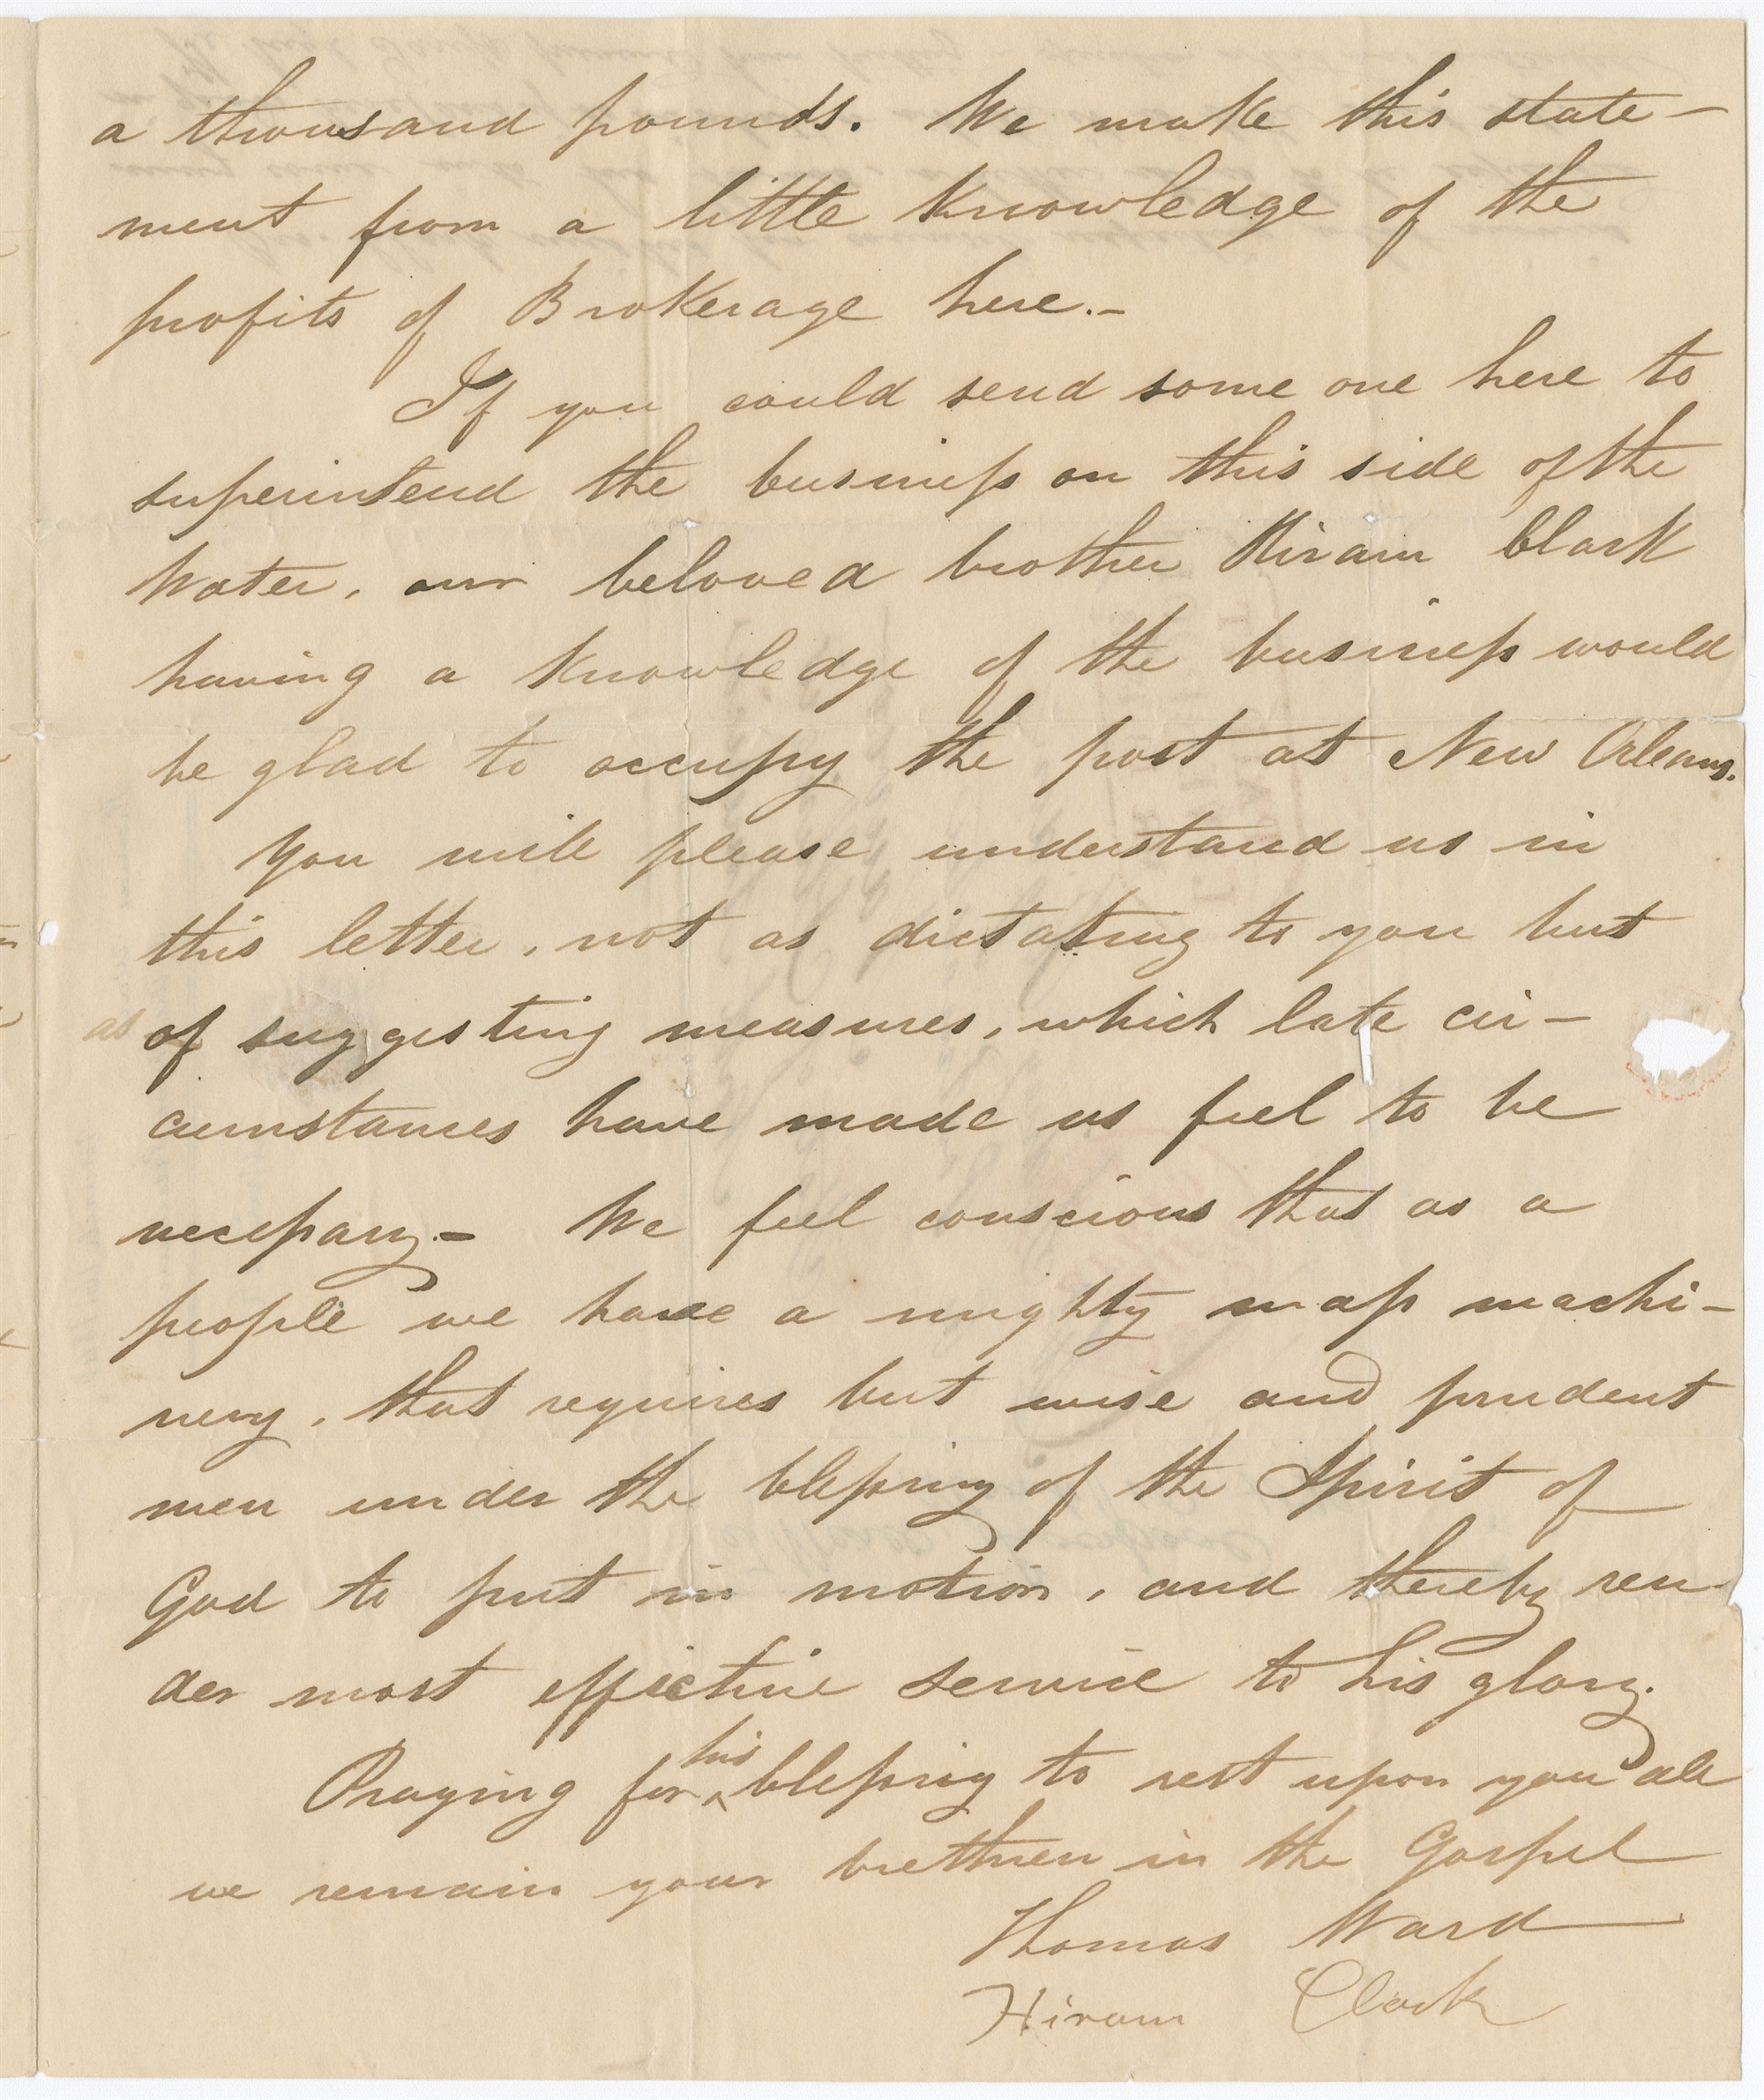 a thousand pounds. We make this state-
ment from a little knowledge of the
profits of Brokerage here.-
If you could send some one here to
superintend the business on this side of the
Water, our beloved brother Hiram Clark
having a knowledge of the business would
be glad to occupy the post at New Orleans.
You will please understand us in
this letter, not as dictating to you but
as of suggesting measures, which late cir-
cumstances have made us feel to be
necessary.- We feel conscious that as a
people we have a mighty mass machi-
nery, that requires but wise and prudent
men under the blessing of the Spirit of
God to put in motion, and thereby ren-
der most effective service to his glory.
Praying for his blessing to rest upon you all
we remain your brethren in the Gospel
Thomas Ward
Hiram Clark